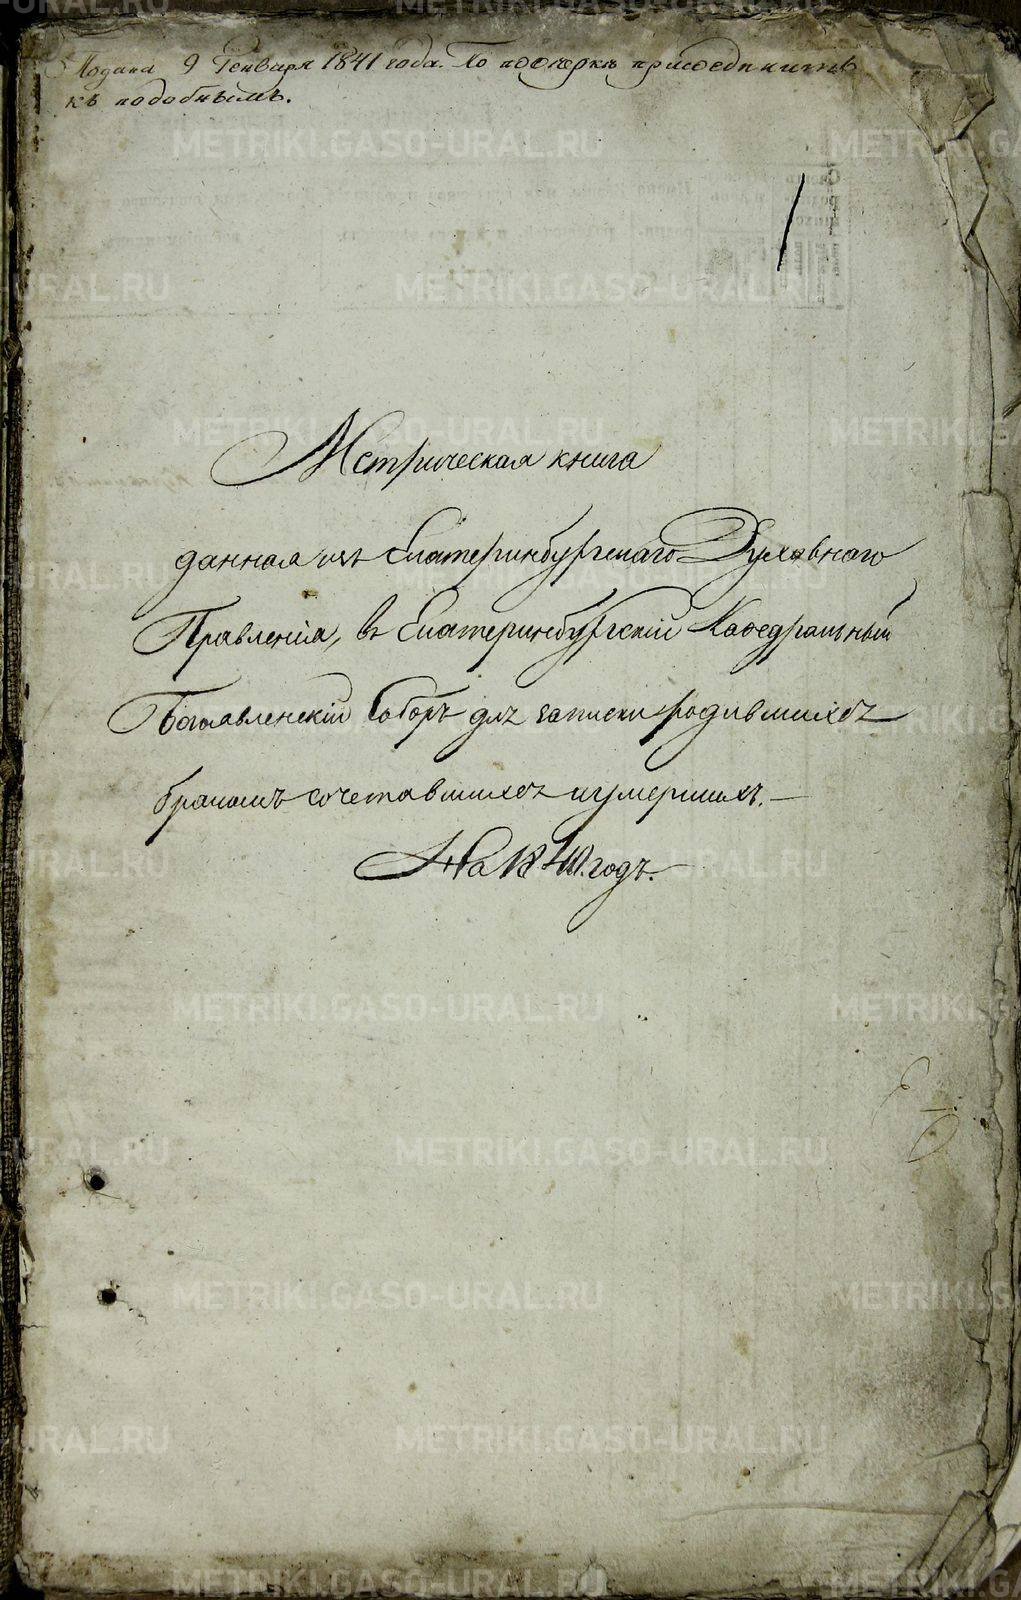 Подана 9 Генваря 1841 года. По поверке присоединить
къ подобнымъ.
Метрическая книга
данная изъ Екатеринбургскаго Духовнаго
Правленія, въ Екатеринбургскій Кафедральный
Богоявленскій Соборъ для записки родившихся
бракомъ сочетавшихся и умершихъ.
На 1840. годъ.
METRIKI.GASO-URAL.RU